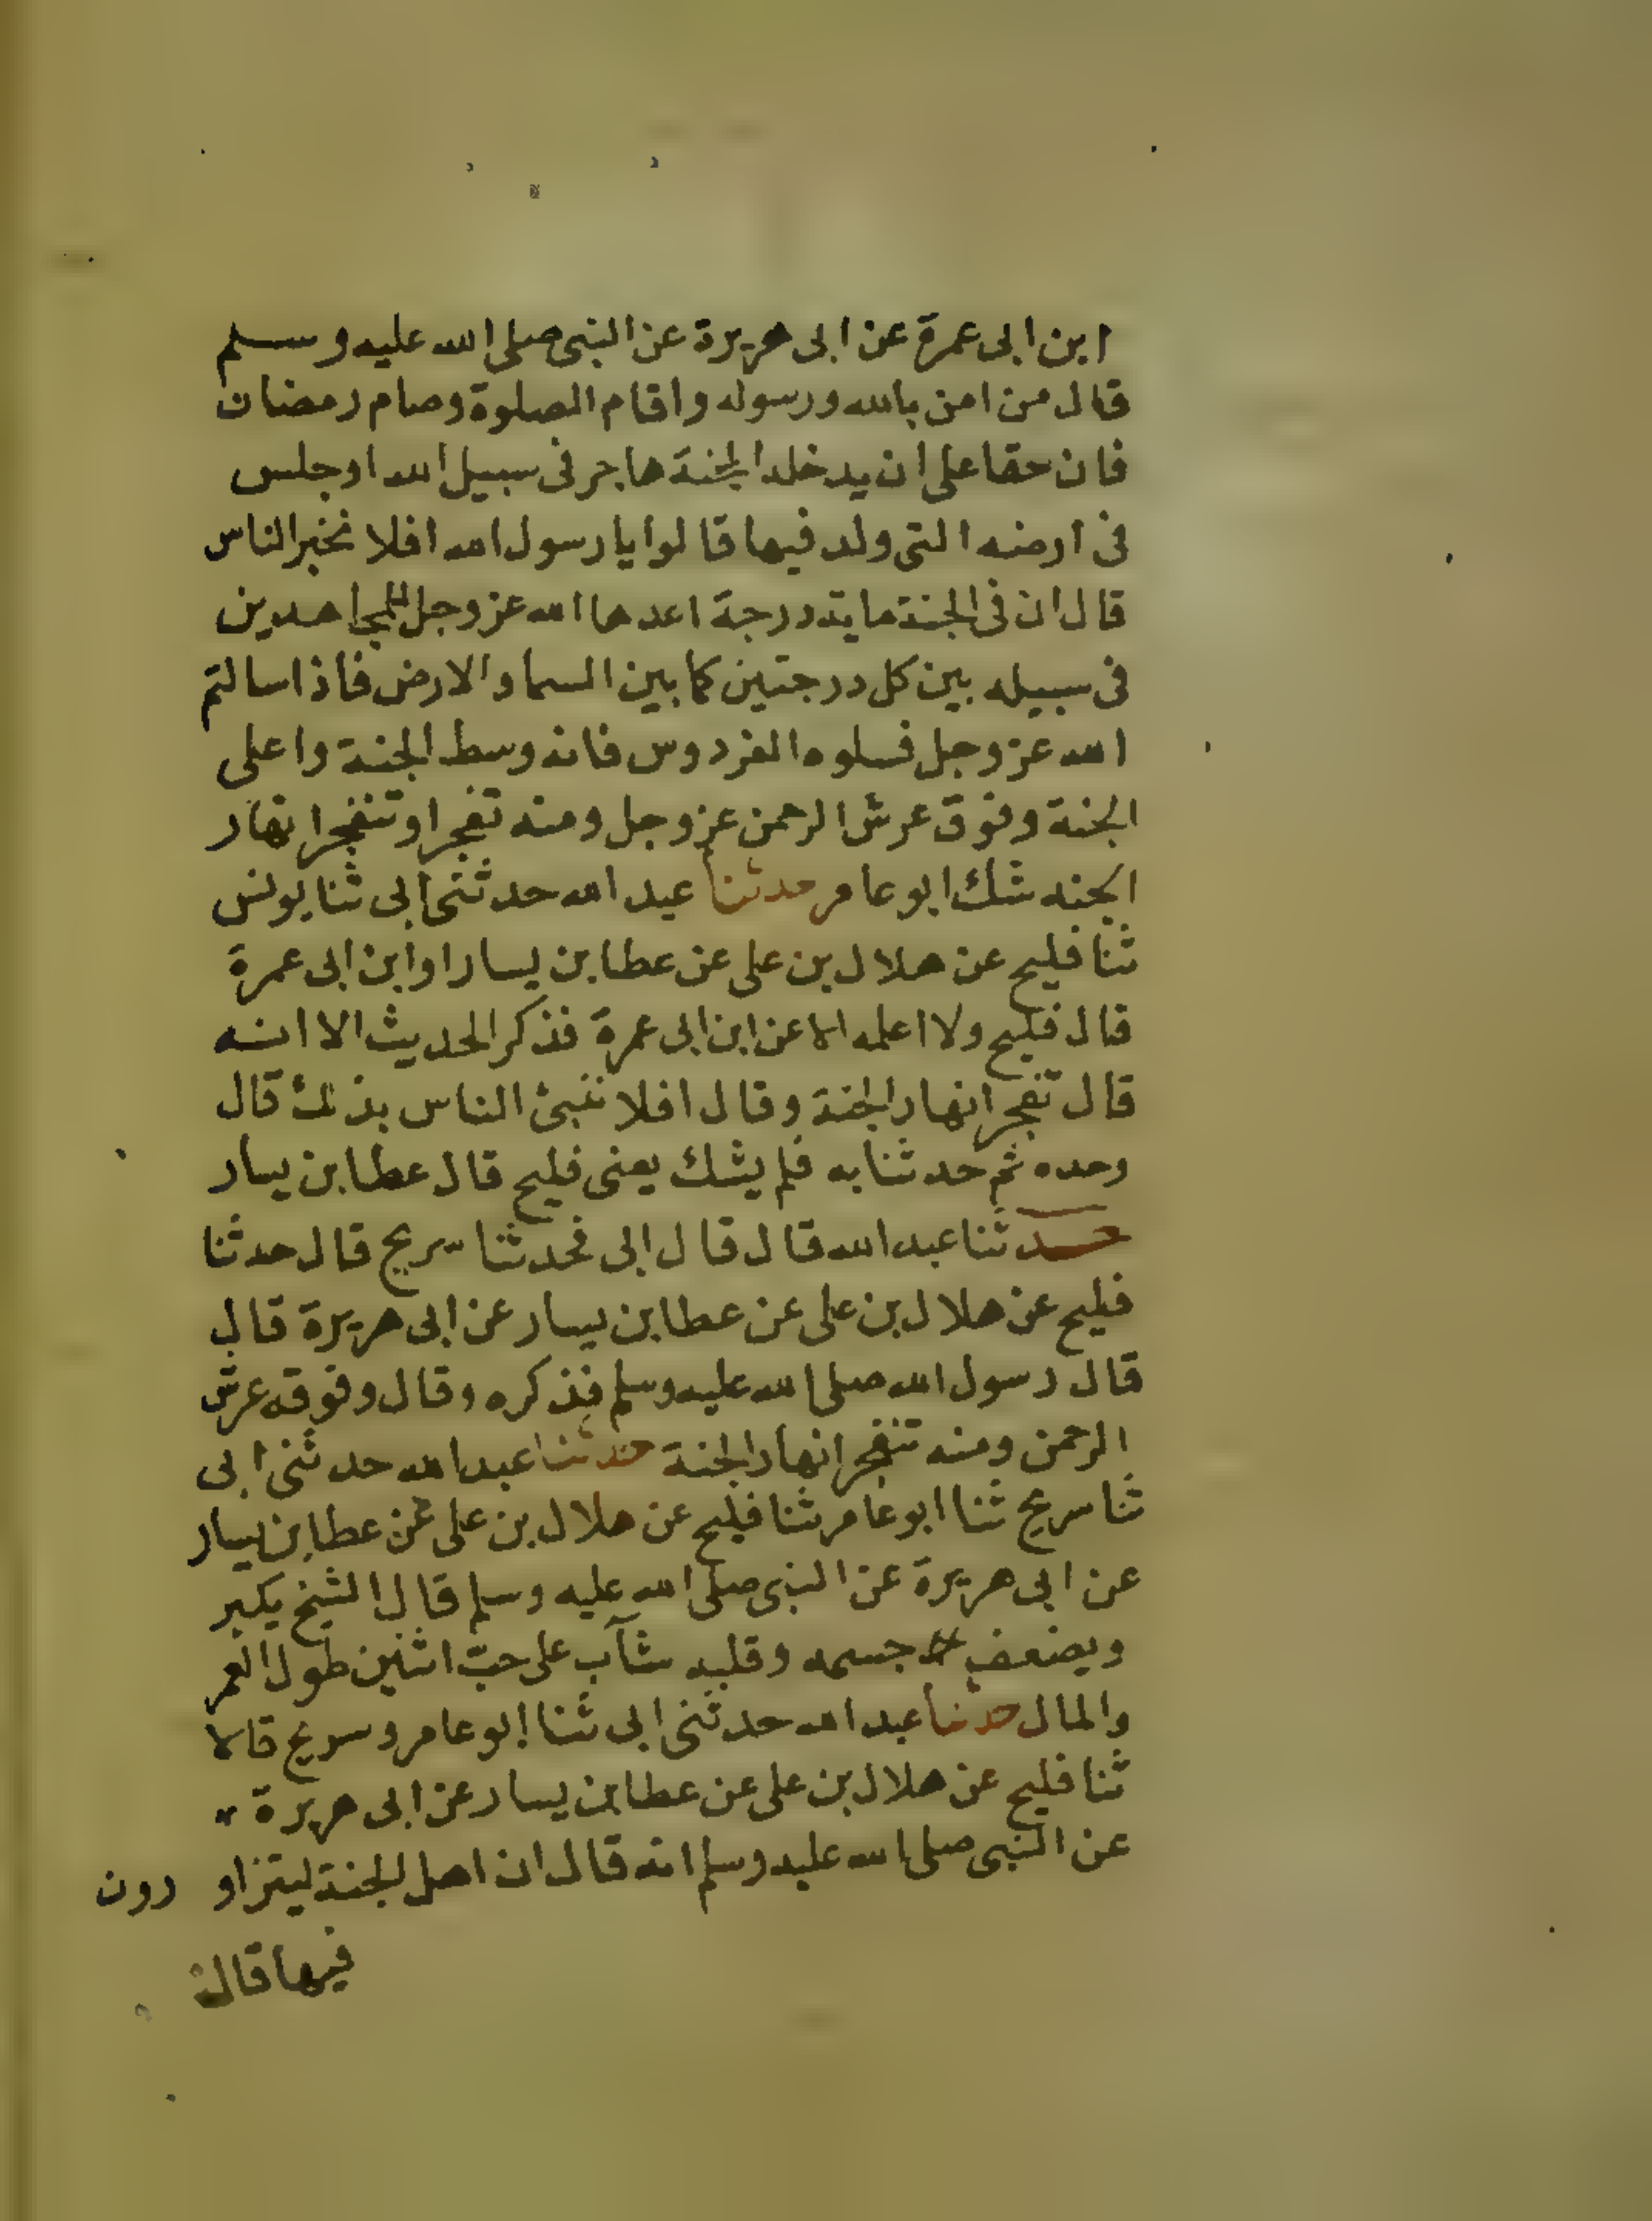 ابن ابى عمرة عن ابى هريرة عن النبى صلى الله عليه وسلم
قال من امن بالله ورسوله واقام الصلوة وصام رمضان
فان حقا على ان يدخله الجنة هاجر فى سبيل الله او جلس
فى ارضه التى ولد فيها قالوا يا رسول الله افلا نخبر الناس
قال ان فى الجنة ماية درجة اعدها الله عز وجل للمجاهدين
فى سبيله بين كل درجتين كما بين السما والارض فاذا سالتم
الله عز وجل فسلوه الفردوس فانه وسط الجنة واعلى
الجنة وفوق عرش الرحمن عز وجل ومنه تفجر او تنفجر انهار
الجنه شك ابو عامر حدثنا عبد الله حدثنى ابى ثنا يونس
ثنا فليح عن هلال بن على عن عطا بن يسار او ابن ابى عمرة
قال فليح ولا اعلمه الا عن ابن ابى عمرة فذكر الحديث الا انه
قال تفجر انهار الجنة وقال افلا ننبئ الناس بذلك قال
وحده ثم حدثنا به فلم يشك يعنى فليح قال عطا بن يسار
حدثنا عبد الله قال قال ابى فحدثنا سريج قال حدثنا
فليح عن هلال بن على عن عطا بن يسار عن ابى هريرة قال
قال رسول الله صلى الله عليه وسلم فذكره وقال وفوقه عرش
الرحمن ومنه تنفجر انهار الجنة حدثنا عبد الله حدثنى ابى
ثنا سريج ثنا ابو عامر ثنا فليح عن هلال بن على عن عطا بن يسار
عن ابى هريرة عن النبى صلى الله عليه وسلم قال الشيخ يكبر
ويضعف جسمه وقلبه شآب على حبّ اثنين طول العمر
والمال حدثنا عبد الله حدثنى ابى ثنا ابو عامر وسريج قالا
ثنا فليح عن هلال بن على عن عطا بن يسار عن ابى هريرة
عن النبى صلى الله عليه وسلم انه قال ان اهل الجنة ليتزاو رون
فيها قال